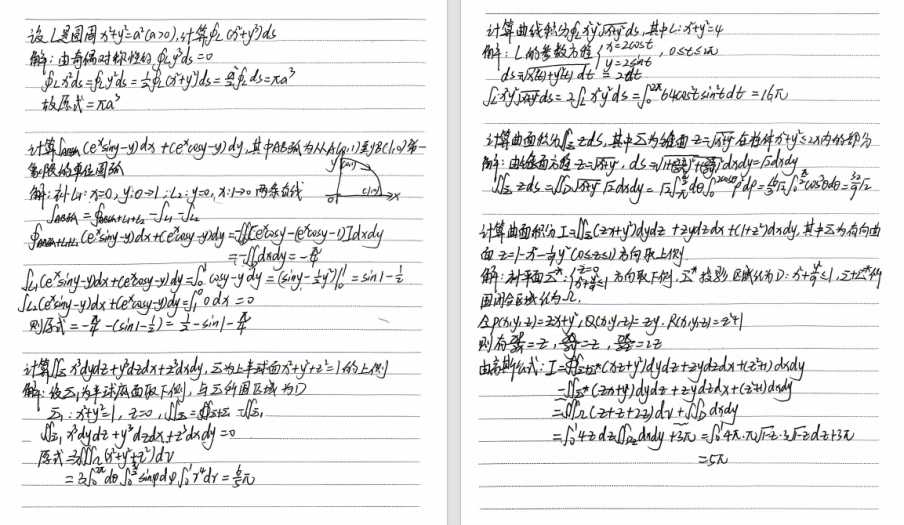 设L是圆周x²+y²=a²(a>0),计算∮L(x²+y³)ds
解:由奇偶对称性得∮L y³ds=0
∮L x²ds=∮L y²ds=½∮L(x²+y²)ds=a²/2∮L ds=πa³
故原式=πa³
计算∫(eˣsiny-y)dx+(eˣcosy-y)dy,其中AB弧为从A(0,1)到B(1,0)第一
象限的单位圆弧
解:补L₁:x=0,y:0→1;L₂:y=0,x:1→0两条直线
∮(eˣsiny-y)dx+(eˣcosy-y)dy=-∬[eˣcosy-(eˣcosy-1)]dxdy
=-∬dxdy=-π/4
∫L₁(eˣsiny-y)dx+(eˣcosy-y)dy=∫₀¹cosy-ydy=(siny-½y²)|₀¹=sin1-½
∫L₂(eˣsiny-y)dx+(eˣcosy-y)dy=∫₁⁰0dx=0
则原式=-π/4-(sin1-½)=½-sin1-π/4
计算∬Σ x³dydz+y³dzdx+z³dxdy,Σ为上半球面x²+y²+z²=1的上侧
解:设Σ₁为半球底面取下侧,与Σ所围区域为Ω
Σ₁:x²+y²=1,z=0,∬Σ=∯Σ+Σ₁-∬Σ₁
∬Σ₁x³dydz+y³dzdx+z³dxdy=0
原式=3∭Ω(x²+y²+z²)dv
=3∫₀²πdθ∫₀^(π/2)sinφdφ∫₀¹r⁴dr=6/5π
计算曲线积分∮L x²y²√(x²+y²)ds,其中L:x²+y²=4
解:L的参数方程{x=2cost y=2sint,0≤t≤2π
ds=√(x'²(t)+y'²(t))dt=2dt
∫L x²y²√(x²+y²)ds=2∫L x²y²ds=∫₀²π64cos²tsin²tdt=16π
计算曲面积分∬Σ zds,其中Σ为锥面z=√(x²+y²)在柱体x²+y²≤2x内的部分
解:由锥面方程z=√(x²+y²),ds=dxdy=√2dxdy
计算曲面积分I=∬Σ(zx+y²)dydz+zydzdx+(1+z²)dxdy,其中Σ为有向曲
面z=1-x²-¼y²(0≤z≤1)方向取上侧.
围闭合区域为Ω.
令P(x,y,z)=zx+y²,Q(x,y,z)=zy,R(x,y,z)=z²+1
则有∂P/∂x=z,∂Q/∂y=z,∂R/∂z=2z
由高斯公式:I=∯Σ+Σ*(zx+y²)dydz+zydzdx+(z²+1)dxdy
-∬Σ*(zx+y²)dydz+zydzdx+(z²+1)dxdy
=∭Ω(z+z+2z)dv+∬D dxdy
=5π